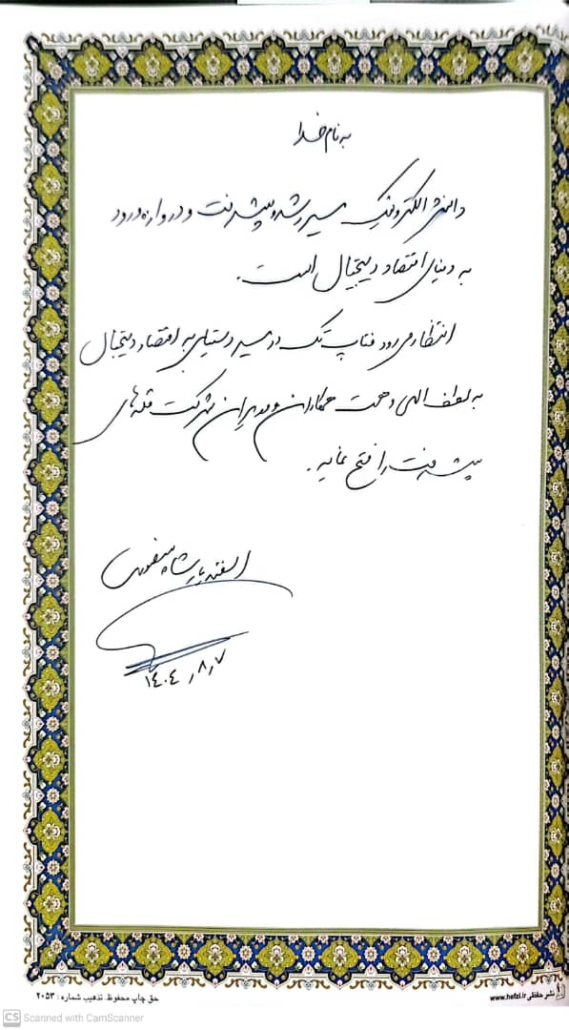 به نام خدا
دانش الکترونیک مسیر رشد و پیشرفت و دروازه ورود
به دنیای اقتصاد دیجیتال است.
انتظار می رود فناپ تک در مسیر دستیابی به اقتصاد دیجیتال
به لطف الهی و همت همکاران و مدیران شرکت قله های
پیشرفت را فتح نماید.
اسفندیار شاه منصوری
۱۴۰۴٫۸٫۷
حق چاپ محفوظ. تذهیب شماره : ۲۰۵۳
نشر حافظی www.hefzi.ir
CS Scanned with CamScanner